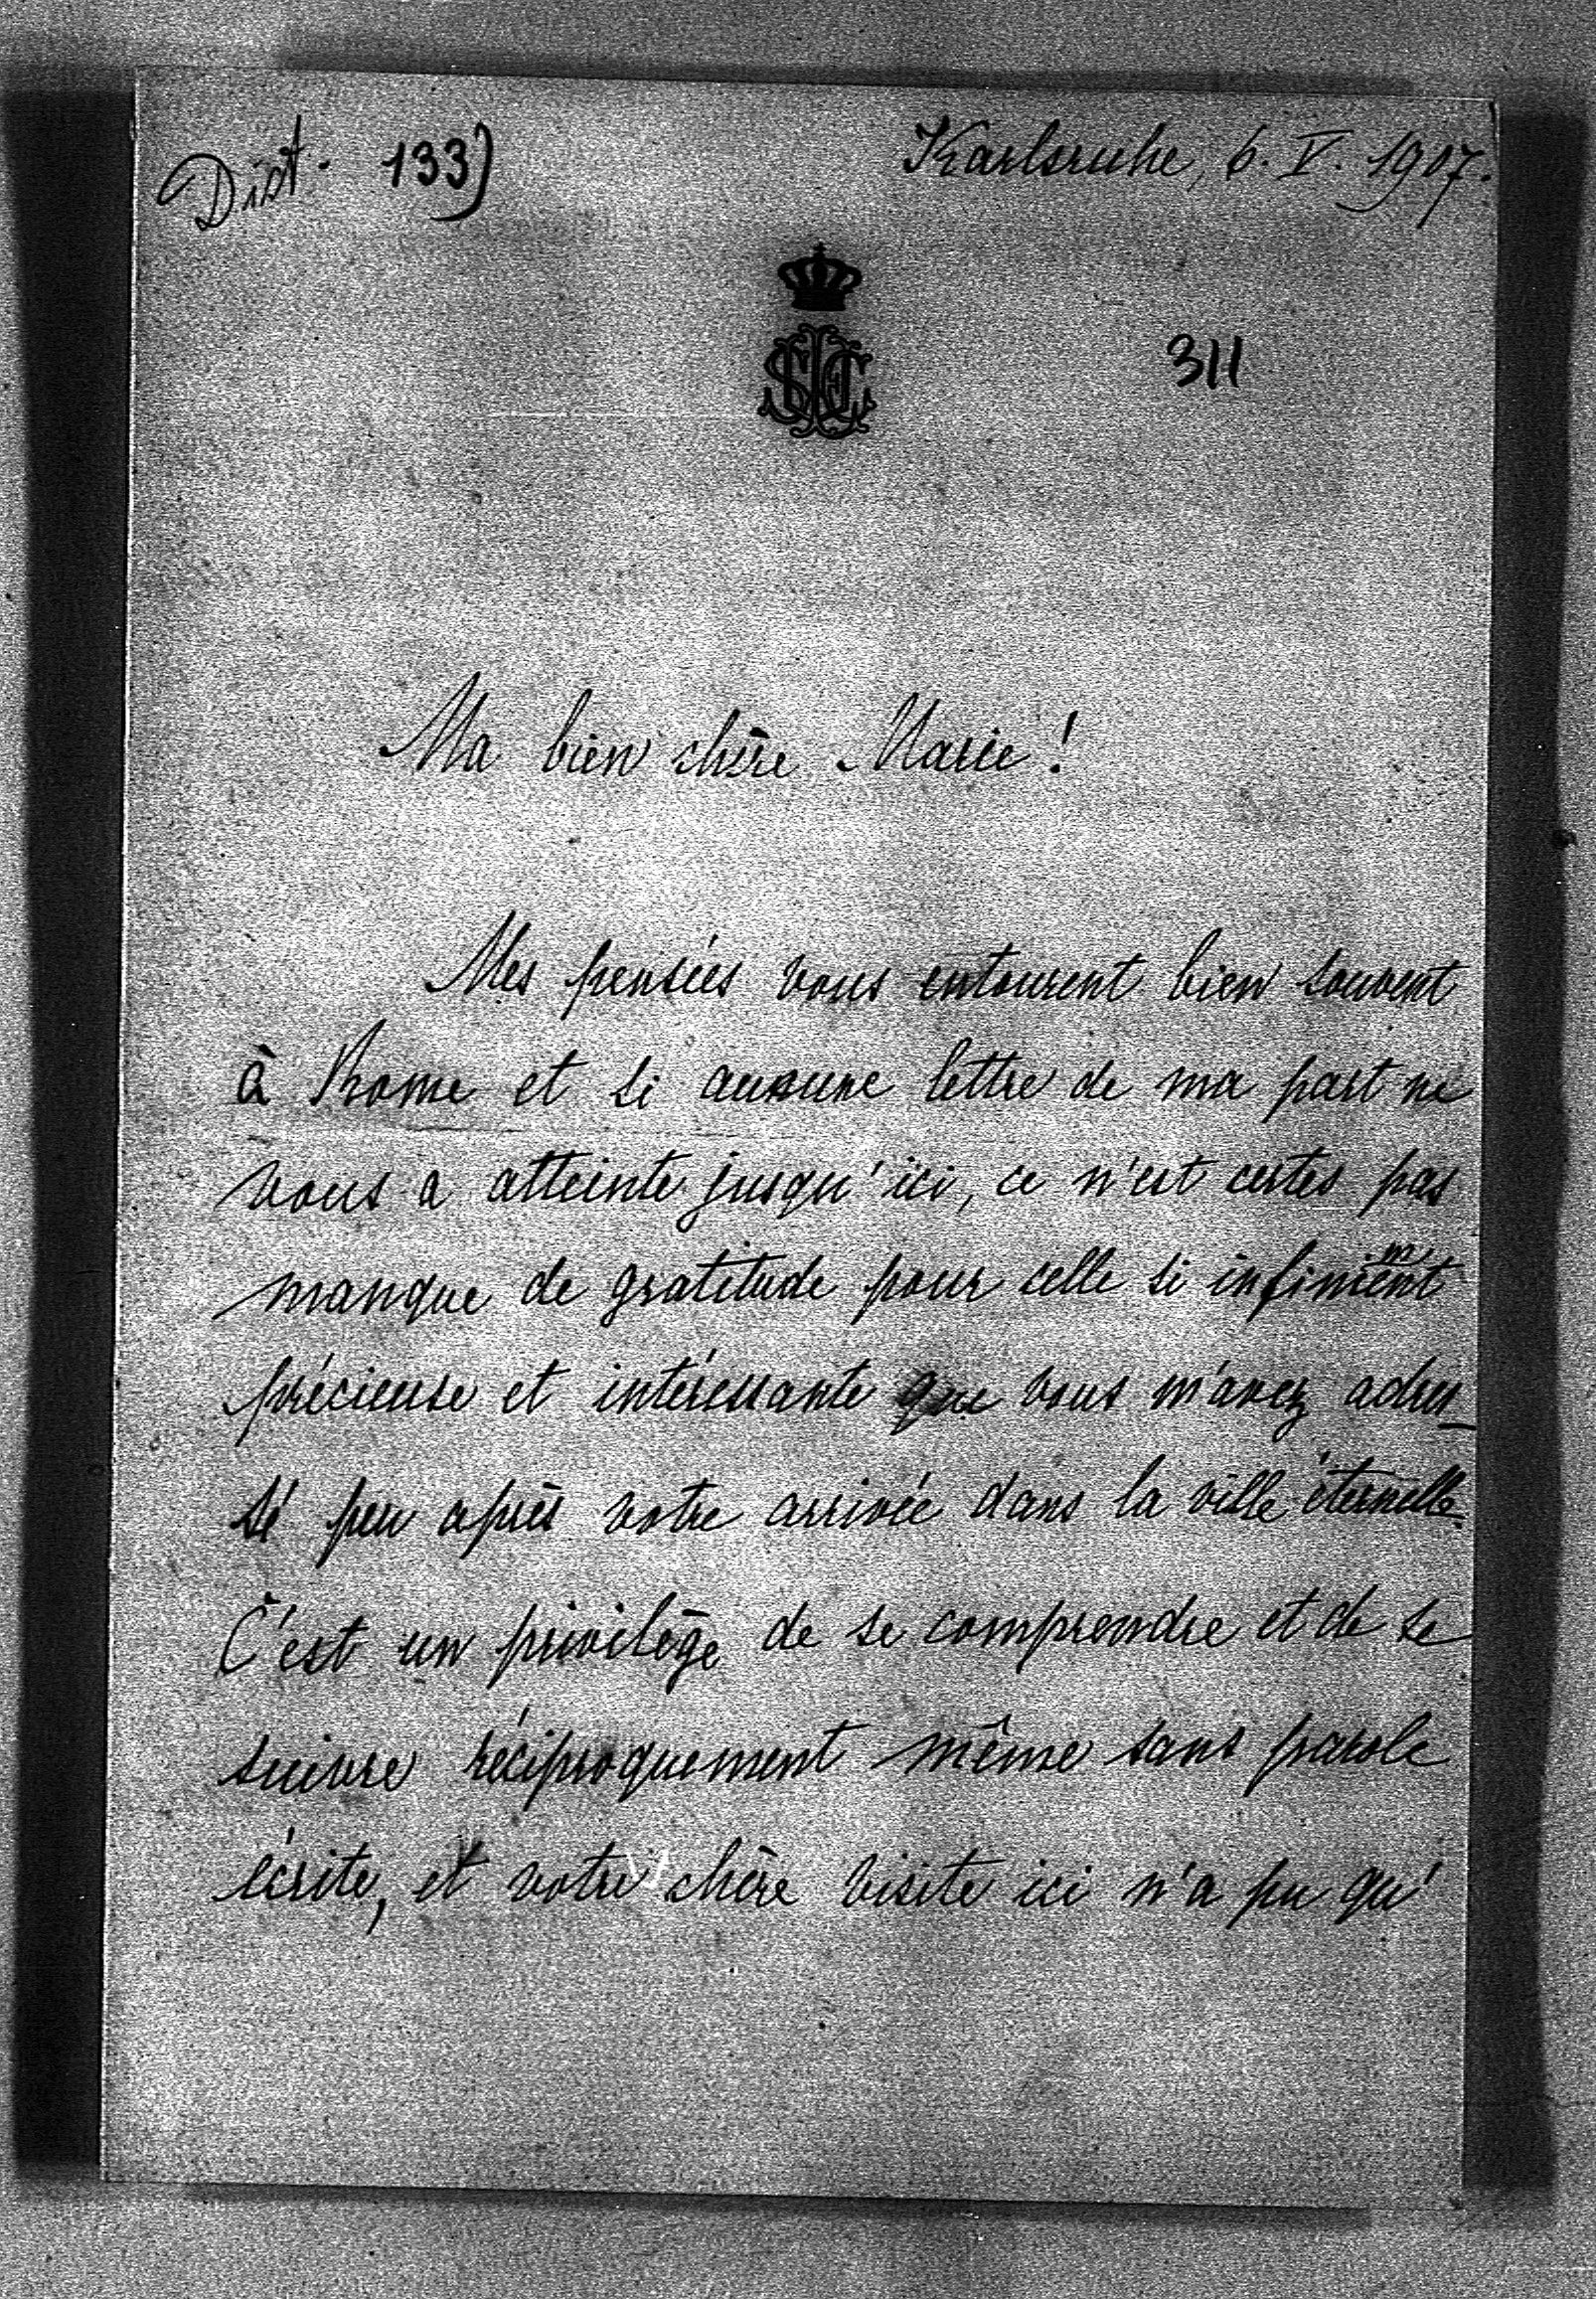 Dict. 133)
Karlsruhe, 6. V. 1907.
311
Ma bien chère Marie!
Mes pensées vous entourent bien souvent
à Rome et si aucune lettre de ma part ne
vous a atteinte jusqu'ici, ce n'est certes pas
manque de gratitude pour celle si infiniment
précieuse et intéressante que vous m'avez adres-
sé peu après votre arrivée dans la ville éternelle.
C'est un privilège de se comprendre et de se
suivre réciproquement même sans parole
écrite, et votre chère visite ici n'a pu qu'